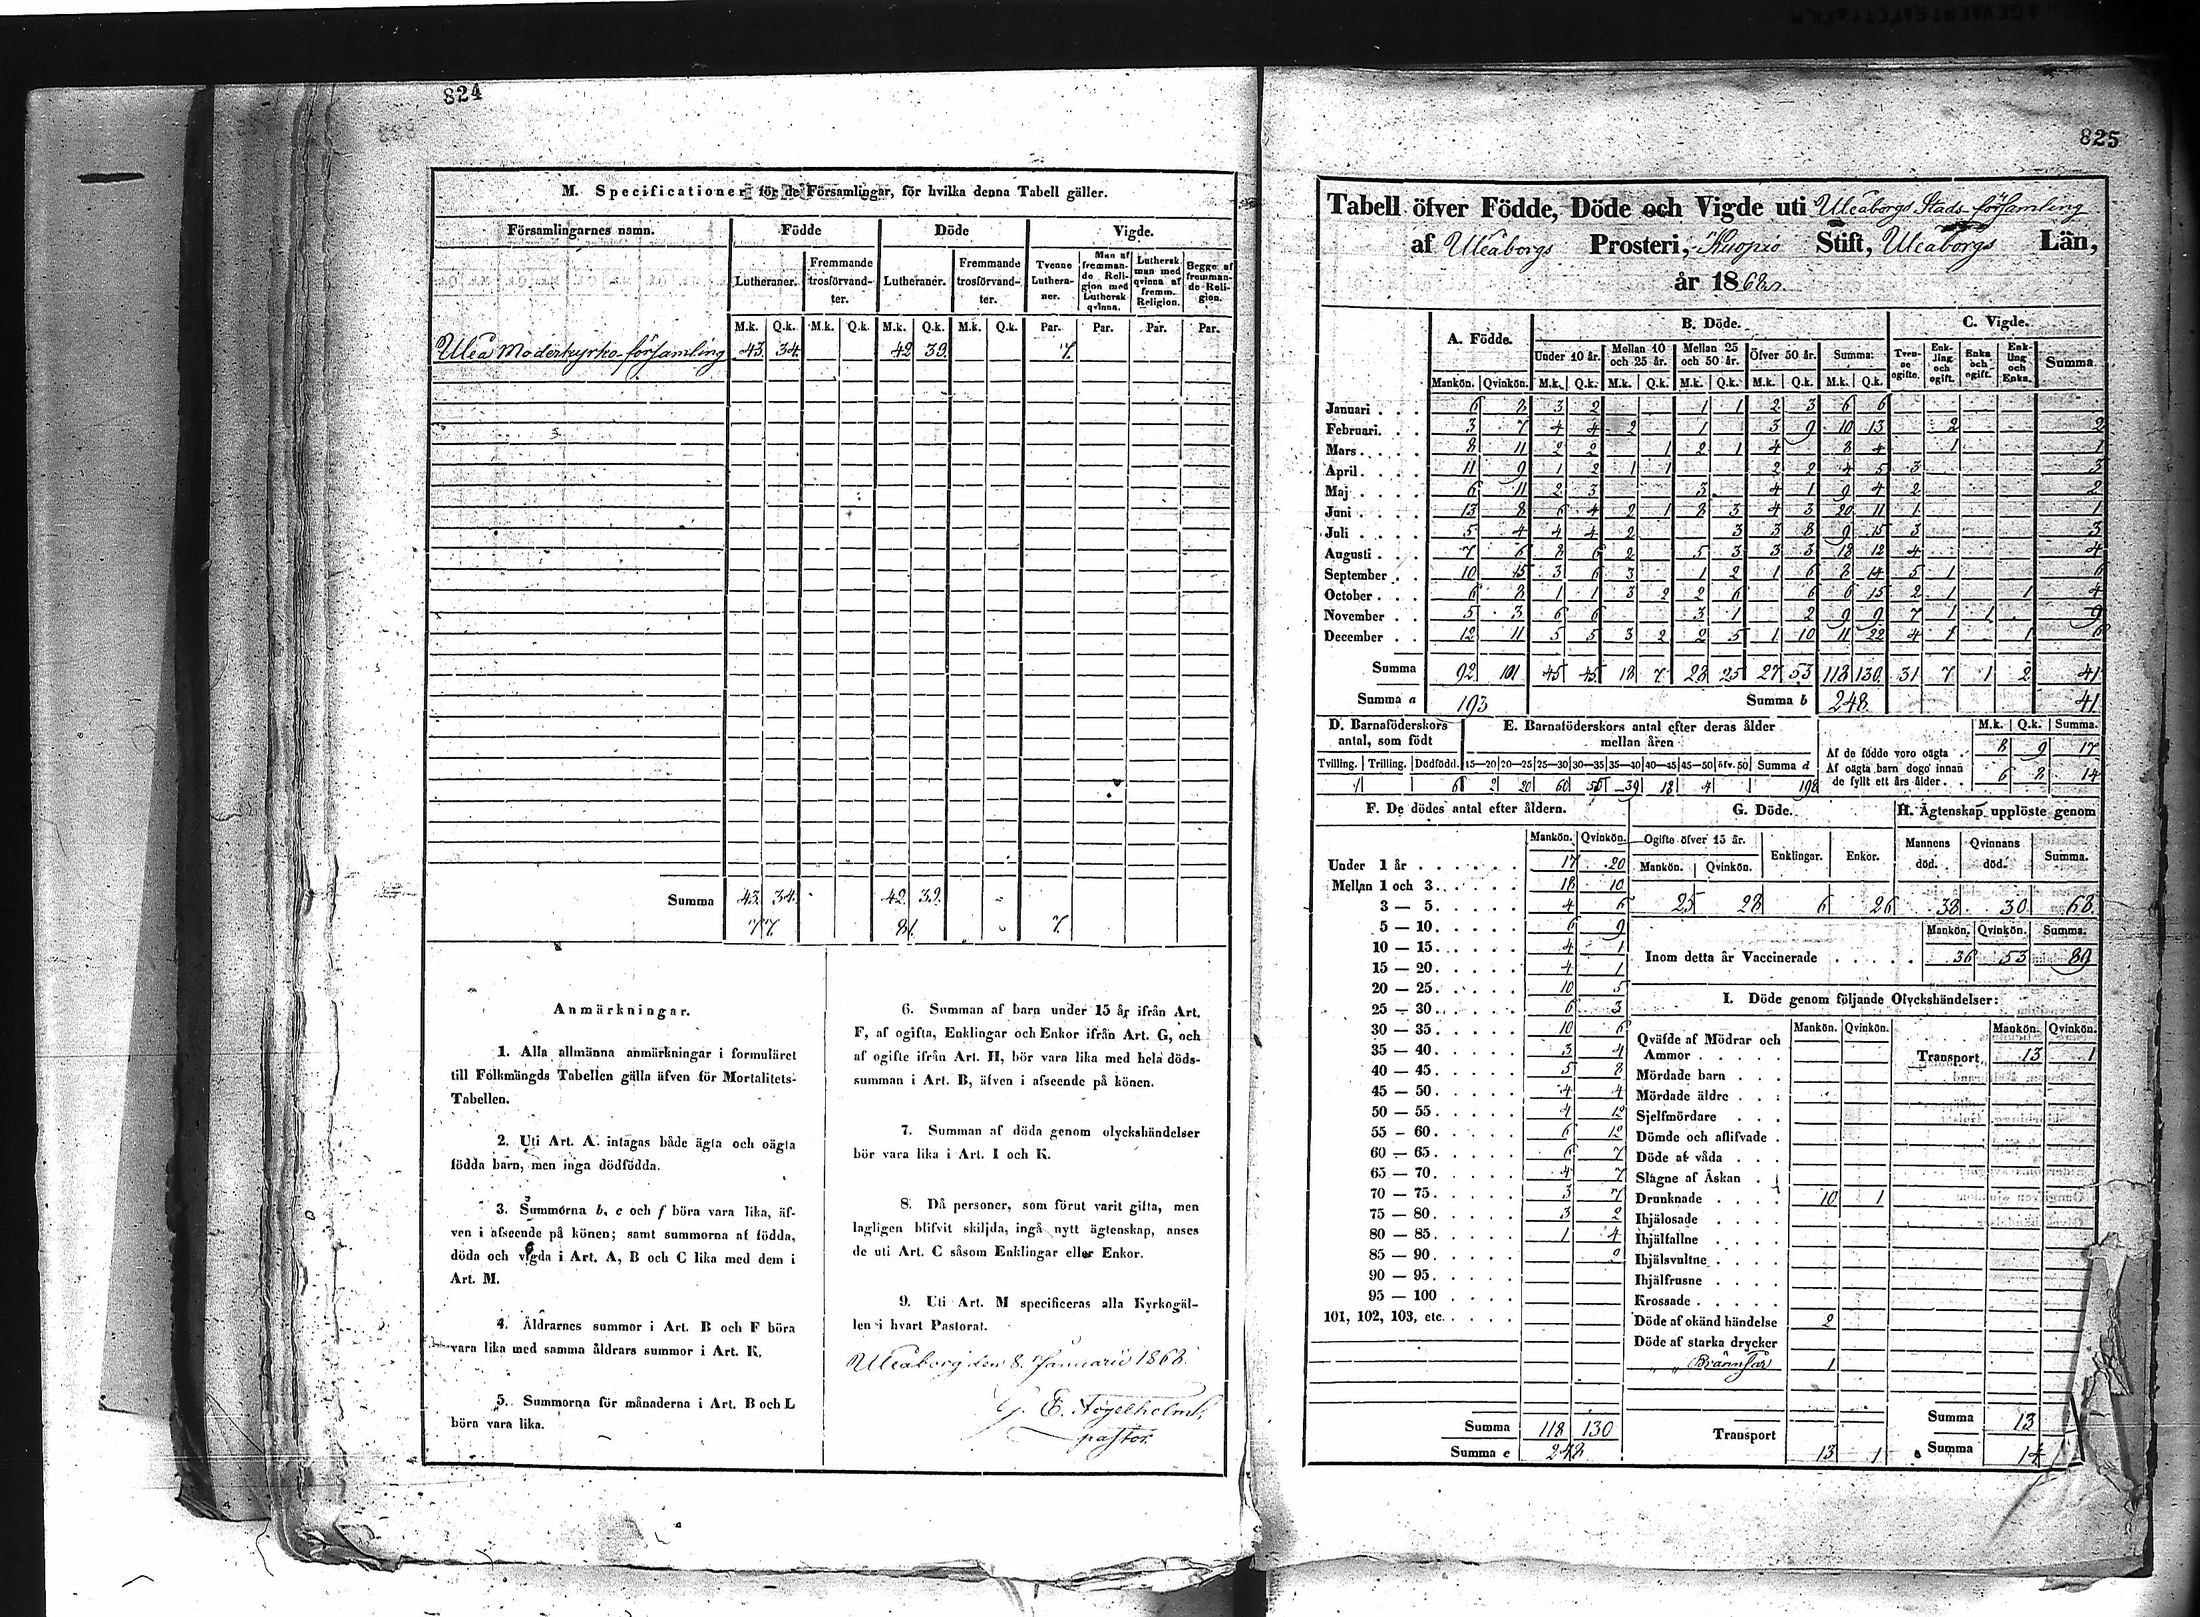 824
M. Specificationer för de Församlingar, för hvilka denna Tabell gäller.
Församlingarnes namn. Födde Döde Vigde.
Lutheraner. Fremmande trosförvandter. Lutheraner. Fremmande trosförvandter. Tvenne Lutheraner. Man af fremmande Religion med Luthersk qvinna. Luthersk man med qvinna af fremm. Religion. Begge af fremmande Religion.
M.k. Q.k. M.k. Q.k. M.k. Q.k. M.k. Q.k. Par. Par. Par. Par.
Uleå Moderkyrko-församling 43. 34. 42 39. 7.
Summa 43. 34. 42. 39.
77. 81. 7.
Anmärkningar.
1. Alla allmänna anmärkningar i formuläret
till Folkmängds Tabellen gälla äfven för Mortalitets-
Tabellen.
2. Uti Art. A. intagas både ägta och oägta
födda barn, men inga dödfödda.
3. Summorna b, e och f böra vara lika, äf-
ven i afseende på könen; samt summorna af födda,
döda och vigda i Art. A, B och C lika med dem i
Art. M.
4. Åldrarnes summor i Art. B och F böra
vara lika med samma åldrars summor i Art. K.
5. Summorna för månaderna i Art. B och L
böra vara lika.
6. Summan af barn under 15 år ifrån Art.
F, af ogifta, Enklingar och Enkor ifrån Art. G, och
af ogifte ifrån Art. H, bör vara lika med hela döds-
summan i Art. B, äfven i afseende på könen.
7. Summan af döda genom olyckshändelser
bör vara lika i Art. I och K.
8. Då personer, som förut varit gifta, men
lagligen blifvit skiljda, ingå nytt ägtenskap, anses
de uti Art. C såsom Enklingar eller Enkor.
9. Uti Art. M specificeras alla Kyrkogäl-
len i hvart Pastorat.
Uleåborg den 8. Januarii 1868.
G. E. Fogelholm,
pastor.
825
Tabell öfver Födde, Döde och Vigde uti Uleåborgs Stads församling
af Uleåborgs Prosteri, Kuopio Stift, Uleåborgs Län,
år 1862
A. Födde. B. Döde. C. Vigde.
Under 10 år. Mellan 10 och 25 år. Mellan 25 och 50 år. Öfver 50 år. Summa: Tvenne ogifte. Enkling och ogift. Enka och ogift. Enkling och Enka. Summa
Mankön. Qvinkön. M.k. Q.k. M.k. Q.k. M.k. Q.k. M.k. Q.k. M.k. Q.k.
Januari . . . 6 8 3 2 1 1 2 3 6 6
Februari. . . 3 7 4 4 2 1 3 9 10 13 2 2
Mars . . . . 8 11 2 2 1 2 1 4 8 4 1 1
April . . . . 11 9 1 2 1 1 2 2 4 5 3 3
Maj . . . . 6 11 2 3 3 4 1 9 4 2 2
Juni . . . . 13 8 6 4 2 1 8 3 4 3 20 11 1 1
Juli . . . . 5 4 4 4 2 3 3 8 9 15 3 3
Augusti . . . 7 6 8 6 2 5 3 3 3 18 12 4 4
September . . 10 15 3 6 3 1 2 1 6 8 14 5 1 6
October . . . 6 8 1 1 3 2 2 6 6 6 15 2 1 1 4
November . . 5 3 6 6 3 1 2 9 9 7 1 1 9
December . . 12 11 5 5 3 2 2 5 1 10 11 22 4 1 1 6
Summa 92 101 45 45 18 7 28 25 27 53 118 130 31 7 1 2 41
Summa a 193 Summa b 248 41
D. Barnaföderskors antal, som födt
E. Barnaföderskors antal efter deras ålder mellan åren
M.k. Q.k. Summa.
Af de födde voro oägta . 8 9 17
Af oägta barn dogo innan
de fyllt ett års ålder . . 6 8 14
Tvilling. Trilling. Dödfödd. 15—20 20—25 25—30 30—35 35—40 40—45 45—50 öfv. 50 Summa d
1 6 2 20 60 55 39 18 4 198
F. De dödes antal efter åldern.
Mankön. Qvinkön.
Under 1 år . . . . . 17 20
Mellan 1 och 3. . . . . 18 10
3 — 5. . . . . 4 6
5 — 10. . . . . 6 9
10 — 15. . . . . 4 1
15 — 20. . . . . 4 1
20 — 25. . . . . 10 5
25 — 30. . . . . 6 3
30 — 35. . . . . 10 6
35 — 40. . . . . 3 4
40 — 45. . . . . 5 8
45 — 50. . . . . 4 4
50 — 55. . . . . 4 12
55 — 60. . . . . 6 12
60 — 65. . . . . 6 7
65 — 70. . . . . 4 7
70 — 75. . . . . 3 7
75 — 80. . . . . 3 2
80 — 85. . . . . 1 4
85 — 90. . . . . 2
90 — 95. . . . .
95 — 100 . . . .
101, 102, 103, etc. . . . .
Summa 118 130
Summa e 248.
G. Döde.
Ogifte öfver 15 år. Enklingar. Enkor.
Mankön. Qvinkön.
25 28 6 26
H. Ägtenskap upplöste genom
Mannens död. Qvinnans död. Summa.
38. 30 68.
Mankön. Qvinkön. Summa.
Inom detta år Vaccinerade . . . . . 36 53 89
I. Döde genom följande Olyckshändelser:
Mankön. Qvinkön. Mankön. Qvinkön.
Qväfde af Mödrar och
Ammor . . . . .
Transport 13 1
Mördade barn . . .
Mördade äldre . . .
Sjelfmördare . .
Dömde och aflifvade .
Döde af våda . . .
Slagne af Åskan . .
Drunknade . . . . 10 1
Ihjälosade . . . .
Ihjälfallne . . . .
Ihjälsvultne . . . .
Ihjälfrusne . . . .
Krossade . . . . .
Döde af okänd händelse 2
Döde af starka drycker
" " Brännsår 1
Summa 13
Transport 13 1
Summa 14